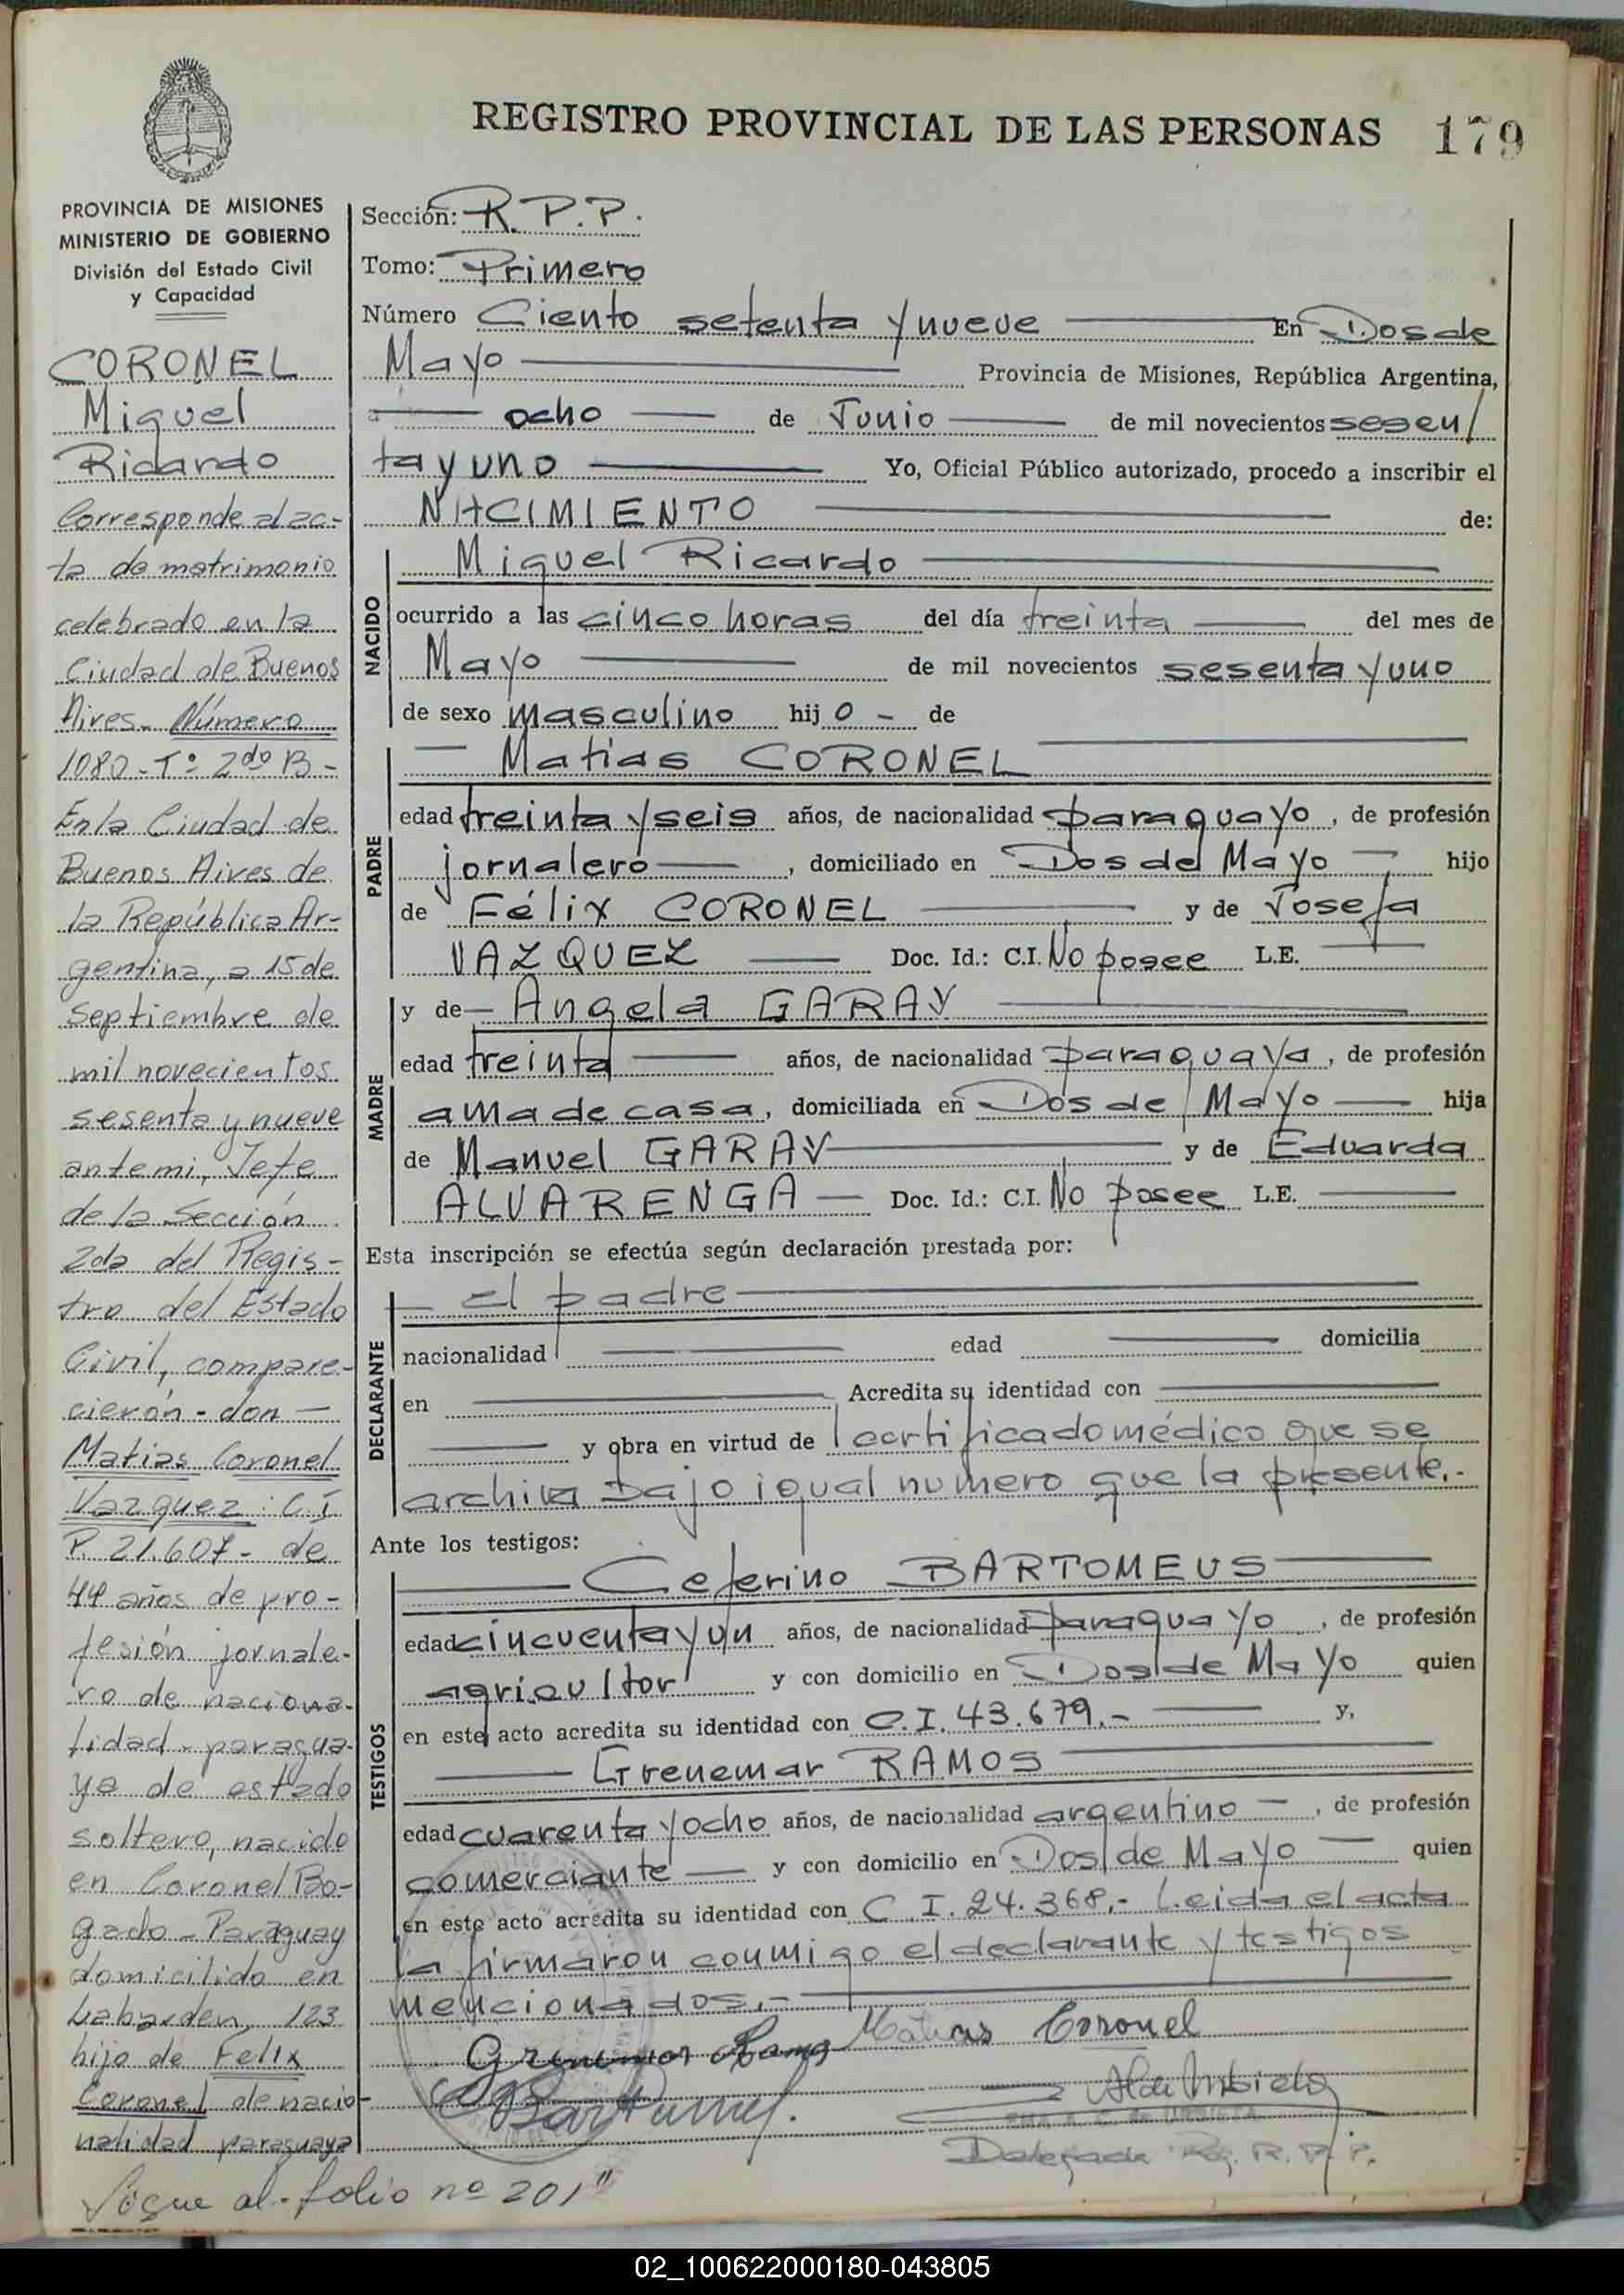 REGISTRO PROVINCIAL DE LAS PERSONAS 179
PROVINCIA DE MISIONES
MINISTERIO DE GOBIERNO
División del Estado Civil
y Capacidad
CORONEL
Miguel
Ricardo
Corresponde al ac-
ta de matrimonio
celebrado en la
Ciudad de Buenos
Aires. Número
1080-Tº 2do B-
En la Ciudad de
Buenos Aires de
la República Ar-
gentina, a 15 de
Septiembre de
mil novecientos
sesenta y nueve
ante mi, Jefe
de la Sección
2da del Regis-
tro del Estado
Civil, compare-
cierón - don -
Matias Coronel
Vazquez : C.I
P. 21.607- de
44 años de pro-
fesión jornale-
ro de naciona-
lidad paragua-
ya de estado
soltero, nacido
en Coronel Bo-
gado - Paraguay
domicilido en
Labarden 123
hijo de Felix
Coronel de nacio-
nalidad paraguaya
Sigue al - folio nº 201"
Sección: R.P.P.
Tomo: Primero
Número Ciento setenta y nueve En Dos de
Mayo Provincia de Misiones, República Argentina,
a ocho de Junio de mil novecientos sesen/
ta y uno Yo, Oficial Público autorizado, procedo a inscribir el
NACIMIENTO de:
NACIDO
Miguel Ricardo
ocurrido a las cinco horas del día treinta del mes de
Mayo de mil novecientos sesenta y uno
de sexo masculino hij o - de
PADRE
Matias CORONEL
edad treinta y seis años, de nacionalidad paraguayo, de profesión
jornalero, domiciliado en Dos de Mayo hijo
de Félix CORONEL y de Josefa
VAZQUEZ Doc. Id.: C.I. No posee L.E.
MADRE
y de Angela GARAY
edad treinta años, de nacionalidad paraguaya, de profesión
ama de casa, domiciliada en Dos de Mayo hija
de Manuel GARAY y de Eduarda
ALVARENGA Doc. Id.: C.I. No posee L.E.
Esta inscripción se efectúa según declaración prestada por:
DECLARANTE
el padre
nacionalidad edad domicilia
en Acredita su identidad con
y obra en virtud de certificado médico que se
archiva bajo igual numero que la presente.-
Ante los testigos:
TESTIGOS
Ceferino BARTOMEUS
edad cincuenta y un años, de nacionalidad paraguayo, de profesión
agricultor y con domicilio en Dos de Mayo quien
en este acto acredita su identidad con C.I. 43.679.- y,
Grenemar RAMOS
edad cuarenta y ocho años, de nacionalidad argentino -, de profesión
comerciante y con domicilio en Dos de Mayo quien
en este acto acredita su identidad con C.I. 24.368.- Leida el acta
la firmaron conmigo el declarante y testigos
mencionados.-
Matias Coronel
Delegada Reg. R.P.P.
02_100622000180-043805